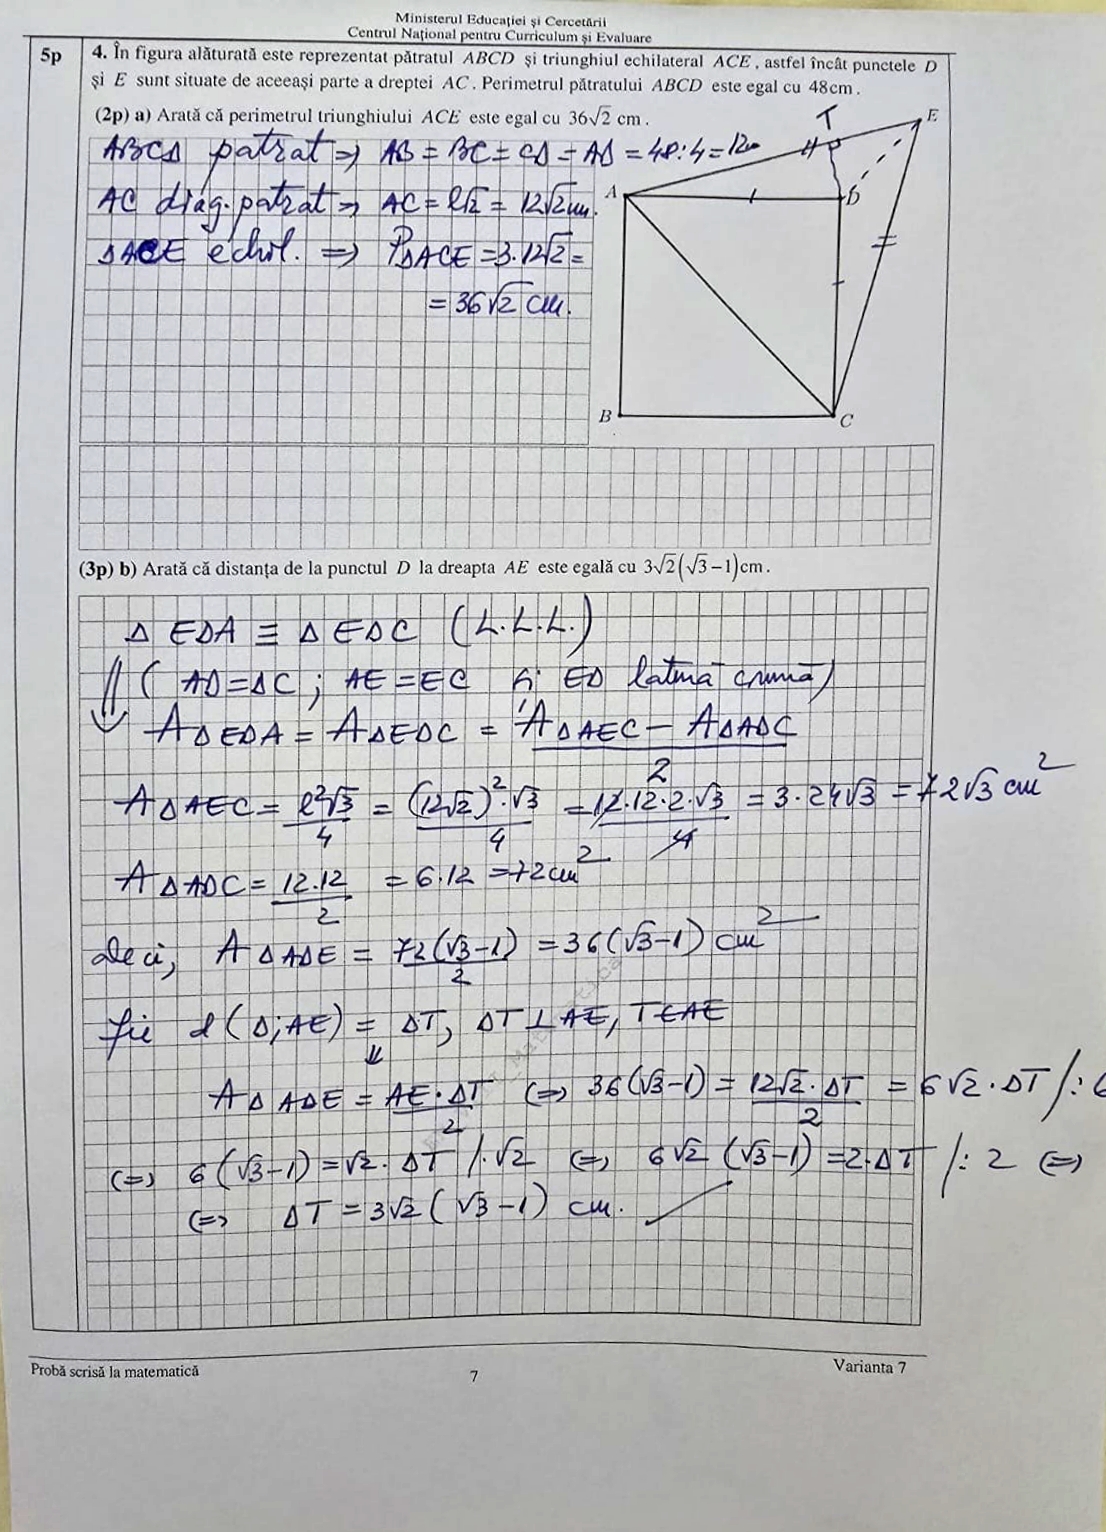 Ministerul Educației și Cercetării
Centrul Național pentru Curriculum și Evaluare
5p
4. În figura alăturată este reprezentat pătratul ABCD și triunghiul echilateral ACE, astfel încât punctele D
și E sunt situate de aceeași parte a dreptei AC. Perimetrul pătratului ABCD este egal cu 48cm.
(2p) a) Arată că perimetrul triunghiului ACE este egal cu 36√2 cm.
ABCΔ patrat => AB = BC = CΔ = AΔ = 48:4 = 12cm
AC diag. patrat => AC = l√2 = 12√2 cm.
ΔACE echil. => PΔACE = 3·12√2 =
= 36√2 cm.
T
E
A
D
B
C
(3p) b) Arată că distanța de la punctul D la dreapta AE este egală cu 3√2(√3−1)cm.
Δ EΔA ≡ Δ EΔC (L.L.L.)
⇓ ( AΔ=ΔC ; AE=EC și EΔ latură comună)
AΔEΔA = AΔEΔC = (AΔAEC − AΔAΔC)/2
AΔAEC = l²√3/4 = (12√2)²·√3/4 = 12·12·2·√3/4 = 3·24√3 = 72√3 cm²
AΔAΔC = 12·12/2 = 6·12 = 72cm²
Deci, AΔAΔE = 72(√3−1)/2 = 36(√3−1) cm²
fie d(Δ;AE) = ΔT, ΔT⊥AE, T∈AE
⇓
AΔAΔE = AE·ΔT/2 (=> 36(√3−1) = 12√2·ΔT/2 = 6√2·ΔT /:6
(=> 6(√3−1)=√2·ΔT /·√2 (=> 6√2 (√3−1)=2·ΔT /:2 (=>
(=> ΔT = 3√2(√3−1) cm.
Probă scrisă la matematică
7
Varianta 7